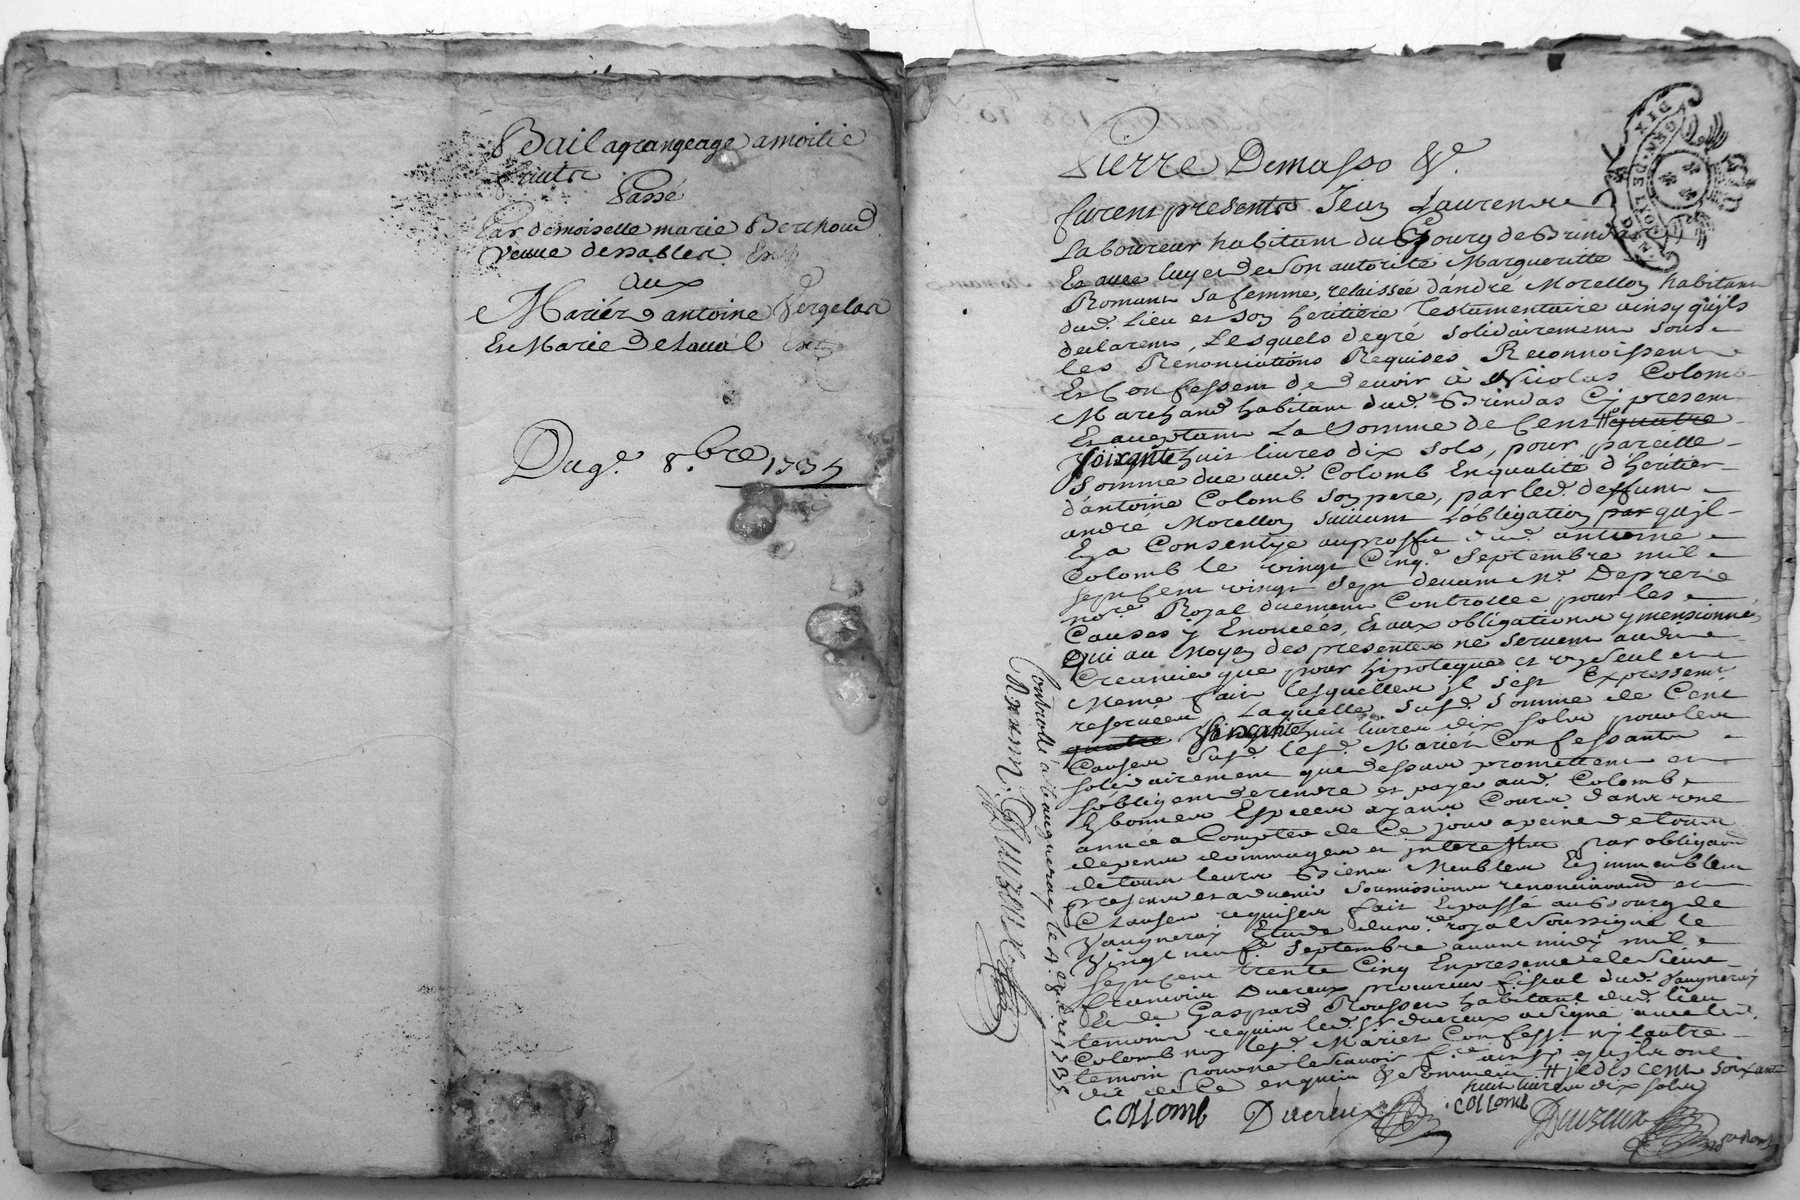 Bail agrangeage amoitie
fruits
Passé
Par demoiselle marie Berthoud
veuve
aux
Mariés antoine Vergelas
Et Marie Delaual
Du 9e. 8.bre 1735
Pierre Demasso &c.
furent presents Jean Laurens
Laboureur habitant du Bourg de Brindas
Et avec luy et de son autorité Margueritte
Romans sa femme, relaissée d'andré Morellon habitans
dud. lieu et son heritiere testamentaire ainsy qu'ils
declarent, Lesquels de gré solidairement sous
les Renonciations Requises Reconnoissent
Et Confessent de devoir à Nicolas Colomb
Marchand habitant dud. Brindas Cy present
Et acceptant La Somme de Cent # quatre
soixante huit livres dix sols, pour pareille
Somme due aud. Colomb En qualité d'héritier
d'antoine Colomb son pere, par led. deffunt
andré Morellon suivant L'obligation par qu'il
En a Consentye au proffit dud. antoine
Colomb le vingt Cinq.e Septembre mil
sept Cent vingt sept devant Me.
nore. Royal duement Controllée pour les
Causes y Enoncées, Et aux obligations y mensionnées
Qui au moyen des presentes ne servent audit
Creancier que pour hipoteque et un seul et
Meme fait lesquelles il s'est Expressement
reservées Laquelle susd. somme de Cent
quatre soixante huit livres dix sols pour les
Causes susd. lesd. Mariés Confessants
solidairement que dessus promettent et
s'obligent de rendre et payer aud. Colomb
En bonnes Especes ayant Cours dans une
année a Compter de Ce jour a peine de tous
depens dommages et interests par obligaon
de tous leurs Biens Meubles Et immeubles
presens et advenir soumissions renonciaons et
Clauses requises fait Et passé au Bourg de
Vaugneray Etude du nore. royal soussigné le
Vingt neuf.e Septembre avant midy mil
sept Cent trente Cinq En presence de Sieur
francois Ducreux procureur fiscal dud. Vaugneray
Et de Gaspard Rousset habitant dud. lieu
temoins requis led. sr. Ducreux a signé avec led.
Colomb non lesd. Mariés Confessts. ny l'autre
temoin pour ne le scavoir fre. ainsi qu'ils ont
dit de Ce enquis & sommés # je dis cent soixante
huit livres dix sols
Collomb Ducreux Collomb Ducreux
Controllé a Vaugneray le 4. 8bre 1735